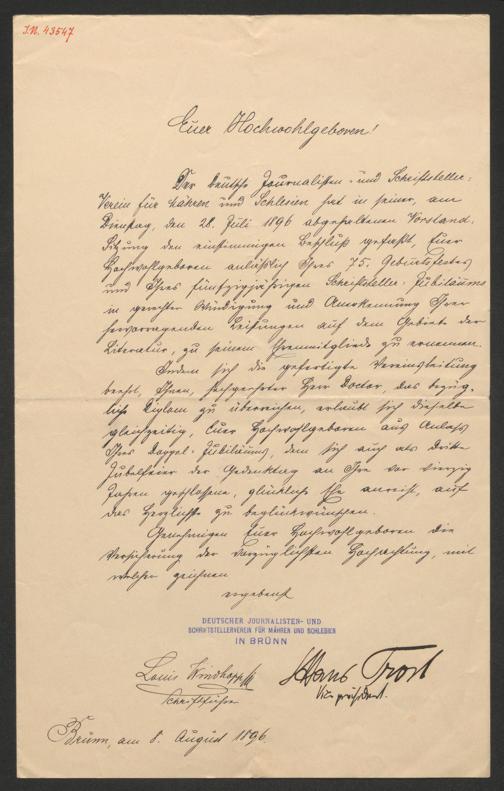 I.N. 43547
Euer Hochwohlgeboren!
Der deutsche Journalisten- und Schriftsteller-
Verein für Mähren und Schlesien hat in seiner, am
Dienstag, den 28. Juli 1896 abgehaltenen Vorstand-
Sitzung den einstimmigen Beschluß gefaßt, Euer
Hochwohlgeboren anläßlich Ihres 75. Geburtsfestes
und Ihres fünfzigjährigen Schriftsteller-Jubiläums
in gerechter Würdigung und Anerkennung Ihrer
hervorragenden Leistungen auf dem Gebiete der
Literatur, zu seinem Ehrenmitgliede zu ernennen.
Indem sich die gefertigte Vereinsleitung
beehrt, Ihnen, hochgeehrter Herr Doctor, das bezüg-
liche Diplom zu überreichen, erlaubt sich dieselbe
gleichzeitig, Euer Hochwohlgeboren aus Anlass
Ihres Doppel-Jubiläums, dem sich auch als dritte
Jubelfeier der Gedenktag an Ihre vor vierzig
Jahren geschlossene, glückliche Ehe anreiht, auf
das Herzlichste zu beglückwünschen.
Genehmigen Euer Hochwohlgeboren die
Versicherung der vorzüglichsten Hochachtung, mit
welcher zeichnen
ergebenst
DEUTSCHER JOURNALISTEN- UND
SCHRIFTSTELLERVEREIN FÜR MÄHREN UND SCHLESIEN
IN BRÜNN
Louis
Schriftführer
Hans Trost
Vicepräsident.
Brünn, am 8. August 1896.